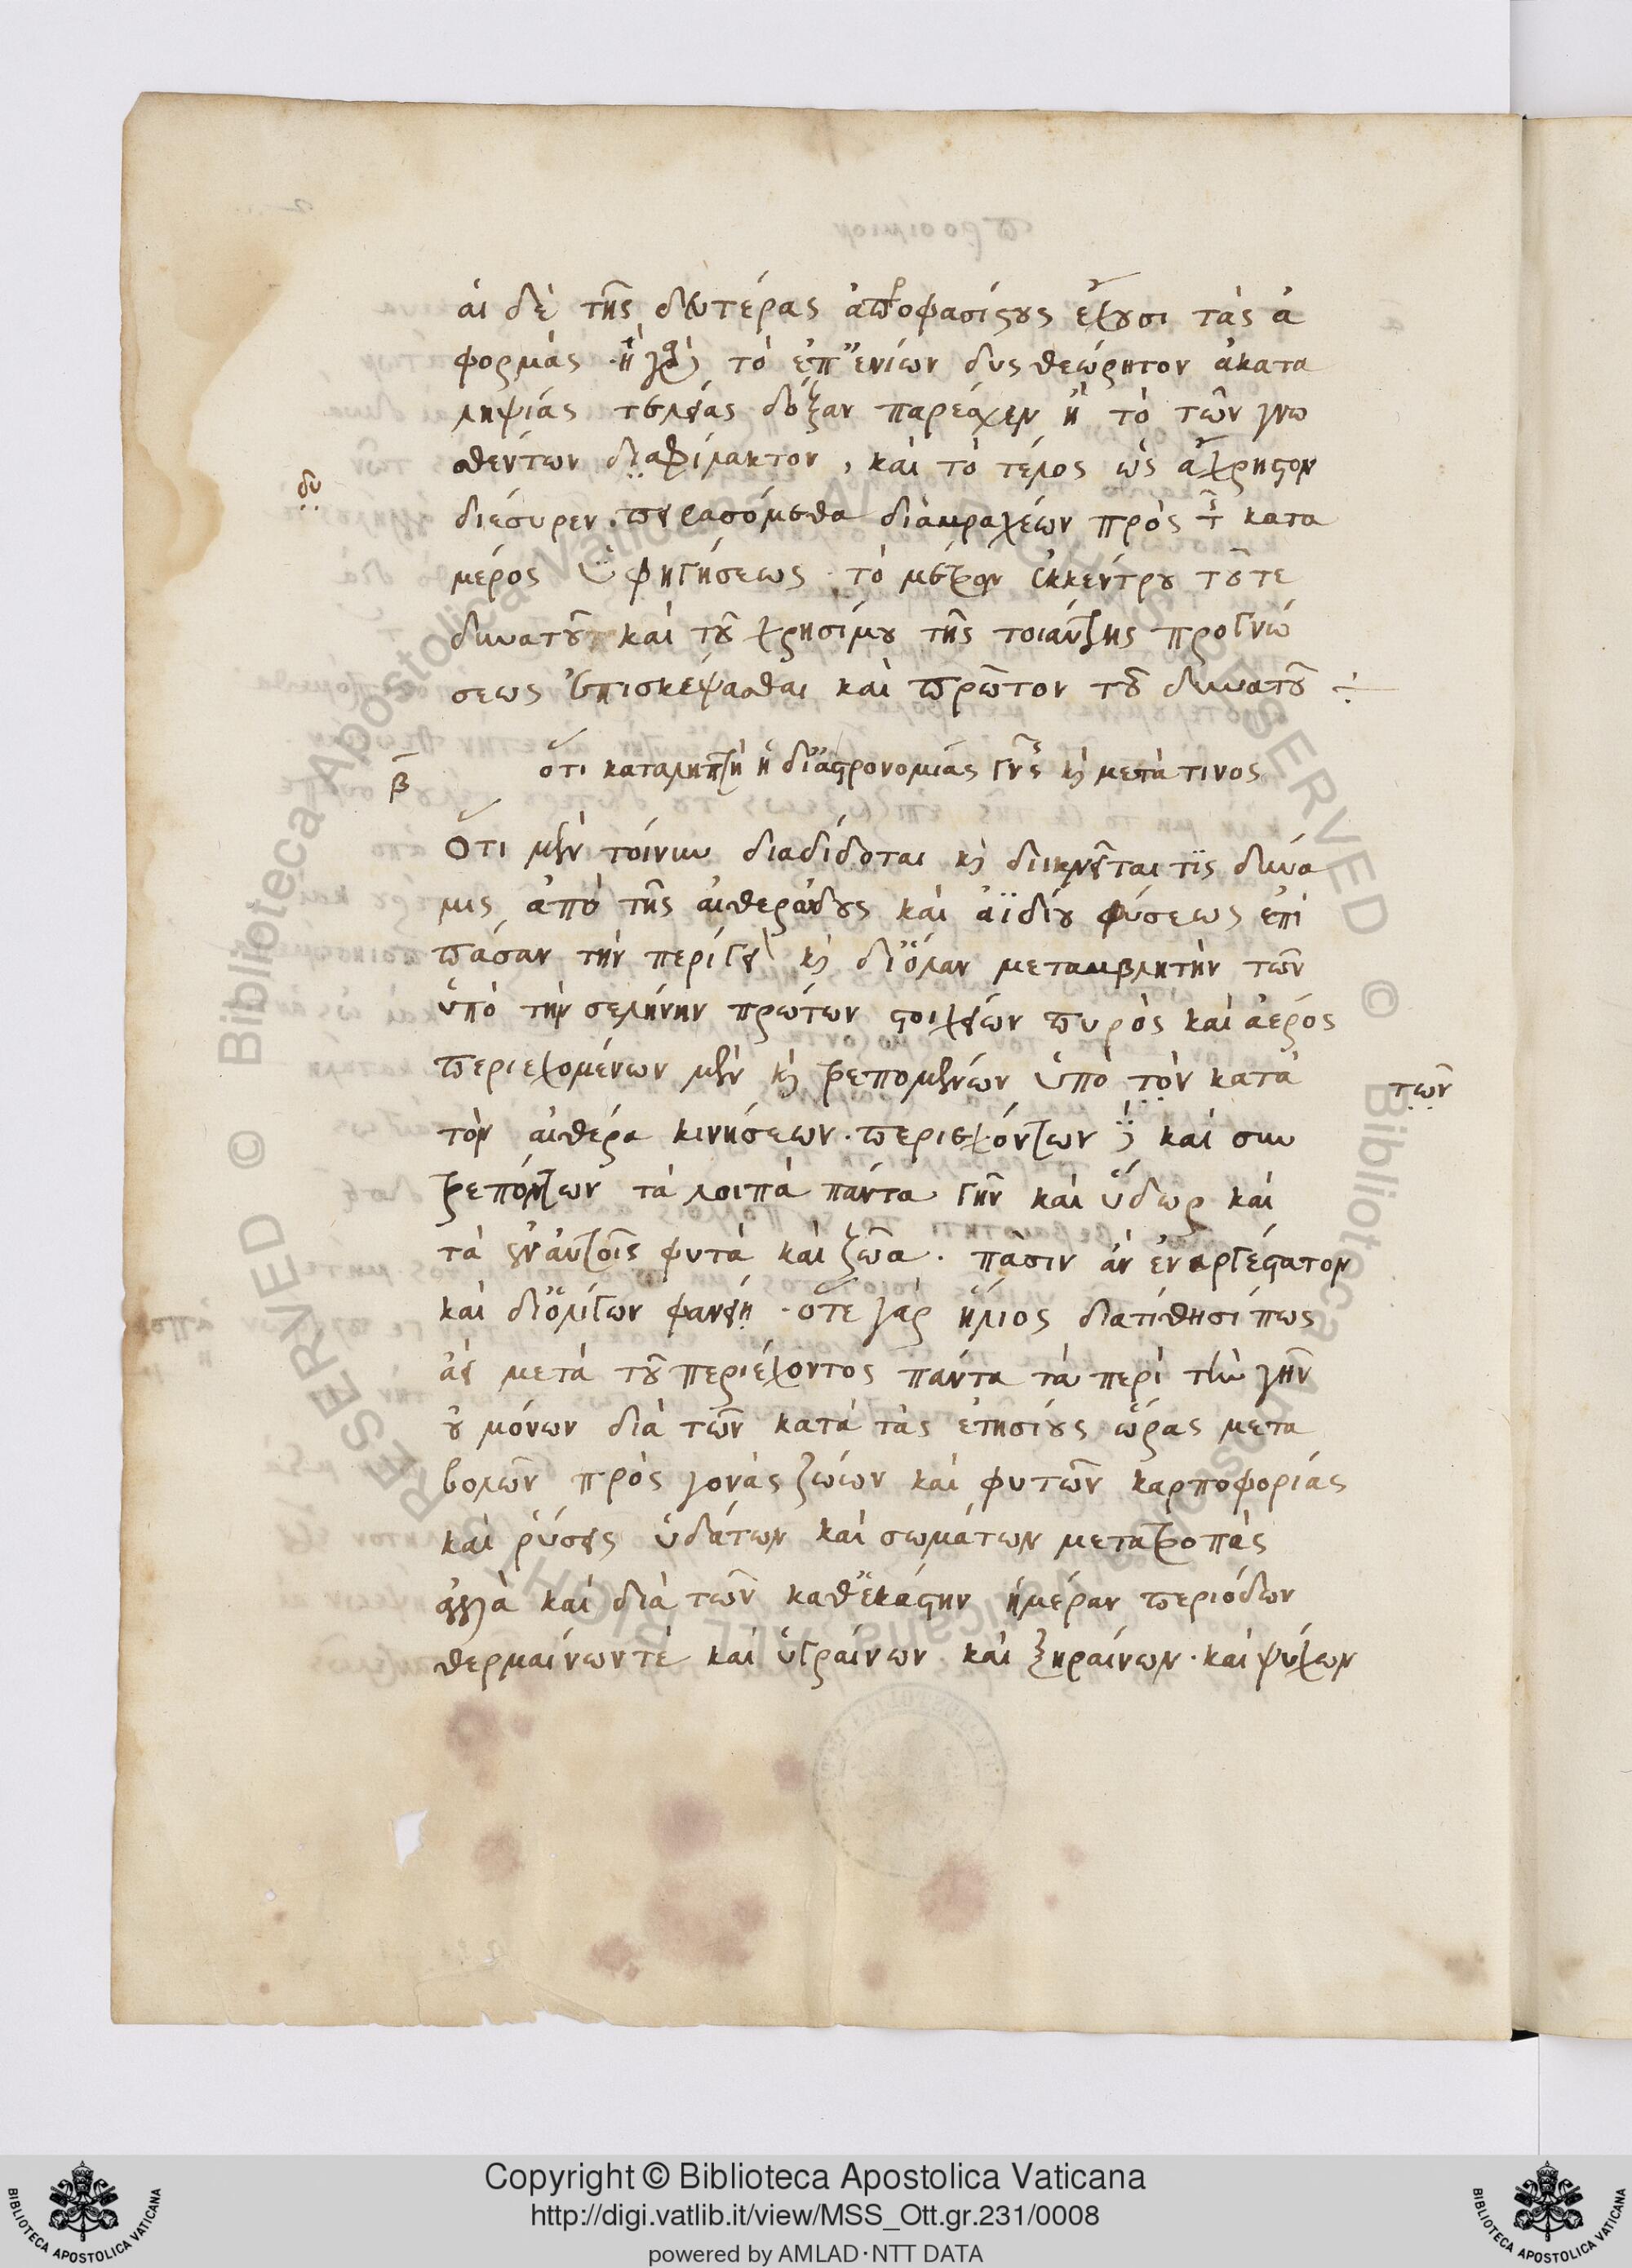 αἱ δὲ τῆς δευτέρας ἀπροφασίστους ἔχουσι τὰς ἀ
φορμὰς · ἢ γὰρ τὸ ἐπ' ἐνίων δυσθεώρητον ἀκατα
ληψίας τελείας δόξαν παρέσχεν ἢ τὸ τῶν γνω
σθέντων διαφύλακτον , καὶ τὸ τέλος ὡς ἄχρηστον
δυ
διέσυρεν . πειρασόμεθα διαμραχέων πρὸς τ κατα
μέρος ὑφηγήσεως · τὸ μέτρον ἐκκέντρου τοῦτε
δυνατοῦ καὶ τοῦ χρησίμου τῆς τοιαύτης προγνώ
σεως ἐπισκέψασθαι καὶ πρῶτον τοῦ δυνατοῦ ÷
β
ὅτι καταληπτὴ ἡ δι' ἀστρονομίας γνῶσις καὶ μετὰ τινος
Ὅτι μὲν τοίνυν διαδίδοται καὶ διικνεῖται τίς δύνα
μις ἀπὸ τῆς αἰθερώδους καὶ ἀϊδίου φύσεως ἐπὶ
πᾶσαν τὴν περίγειον καὶ δι' ὅλαν μεταμβλητὴν τῶν
ὑπὸ τὴν σελήνην πρώτων στοιχείων πυρὸς καὶ ἀέρος
περιεχομένων μὲν καὶ τρεπομένων ὑπὸ τὸν κατὰ
τῶν
τὸν αἰθέρα κινήσεων · περιεχόντων δὲ καὶ συν
τρεπόντων τὰ λοιπὰ πάντα γῆν καὶ ὕδωρ καὶ
τὰ ἐν αὐτοῖς φυτὰ καὶ ζῶα · πᾶσιν ἂν ἐναργέστατον
καὶ δι' ὀλίγων φανείη · ὅτε γὰρ ἥλιος διατίθησί πως
ἀεὶ μετὰ τοῦ περιέχοντος πάντα τὰ περὶ τὴν γῆν
οὐ μόνων διὰ τῶν κατὰ τὰς ἐτησίους ὥρας μετα
βολῶν πρὸς γονὰς ζώων καὶ φυτῶν καρποφορίας
καὶ ῥύσεις ὑδάτων καὶ σωμάτων μετατροπὰς
ἀλλὰ καὶ διὰ τῶν καθ' ἑκάστην ἡμέραν περιόδων
θερμαίνων τὲ καὶ ὑγραίνων καὶ ξηραίνων · καὶ ψύχων
Copyright © Biblioteca Apostolica Vaticana
http://digi.vatlib.it/view/MSS_Ott.gr.231/0008
powered by AMLAD·NTT DATA